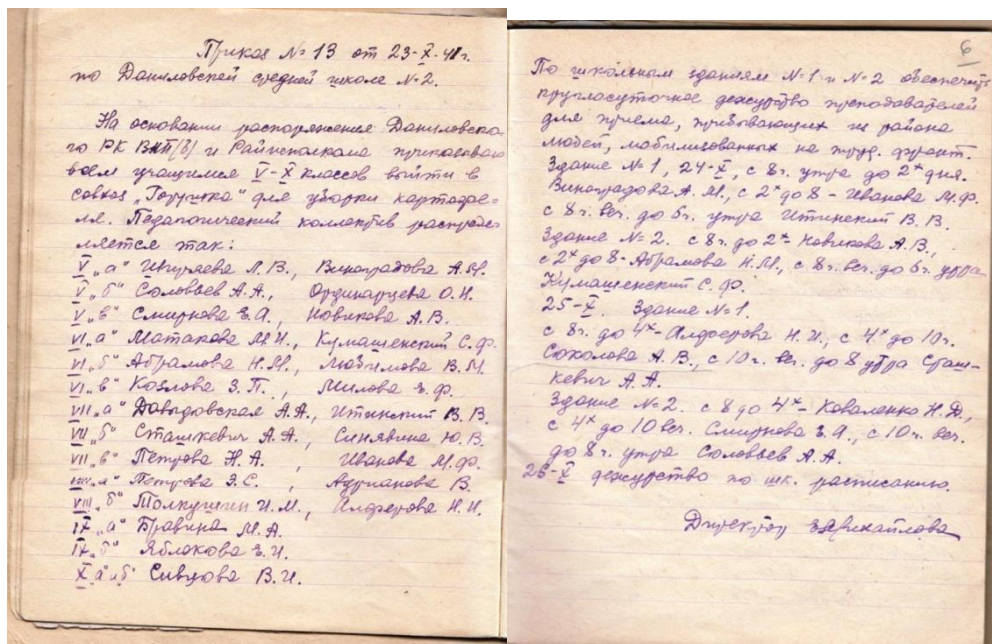 Приказ № 13 от 23-X-41г.
по Даниловской средней школе № 2.
На основании распоряжения Даниловско-
го РК ВКП(б) и Райисполкома приказываю
всем учащимся V-X классов выйти в
совхоз „Горушка" для уборки картофе-
ля. Педагогический коллектив распреде-
ляется так:
V „а" Шуряева Л.В., Виноградова А.М.
V „б" Соловьев А.А., Ординарцева О.Н.
V „в" Смирнова Е.А., Новикова А.В.
VI „а" Матакова М.И., Кумашенский С.Ф.
VI „б" Абрамова Н.М., Любимова В.М.
VI „в" Козлова З.П., Милова Е.Ф.
VII „а" Давыдовская А.А., Итинский В.В.
VII „б" Сташкевич А.А., Синявина Ю.В.
VII „в" Петрова Н.А., Иванова М.Ф.
VIII „а" Петрова Э.С., Адрианова В.
VIII „б" Толкушкин И.М., Алферова Н.И.
IX „а" Бравина М.А.
IX „б" Яблокова Е.И.
X „а" и „б" Сивцова В.И.
6
По школьным зданиям № 1 и № 2 обеспечить
круглосуточное дежурство преподавателей
для приема, прибывающих из района
людей, мобилизованных на труд. фронт.
Здание № 1, 24-X, с 8 г. утра до 2х дня.
Виноградова А.М., с 2х до 8 - Иванова М.Ф.
с 8 г. веч. до 6 г. утра Итинский В.В.
Здание № 2. с 8 г. до 2х - Новикова А.В.,
с 2х до 8 - Абрамова Н.М., с 8 г. веч. до 6 г. утра
Кумашенский С.Ф.
25-X. Здание № 1.
с 8 г. до 4х - Алферова Н.И., с 4х до 10 г.
Соколова А.В., с 10 г. веч. до 8 утра Сташ-
кевич А.А.
Здание № 2. с 8 до 4х - Коваленко Н.Д.,
с 4х до 10 веч. Смирнова Е.А., с 10 г. веч.
до 8 г. утра Соловьев А.А.
26-X дежурство по шк. расписанию.
Директор